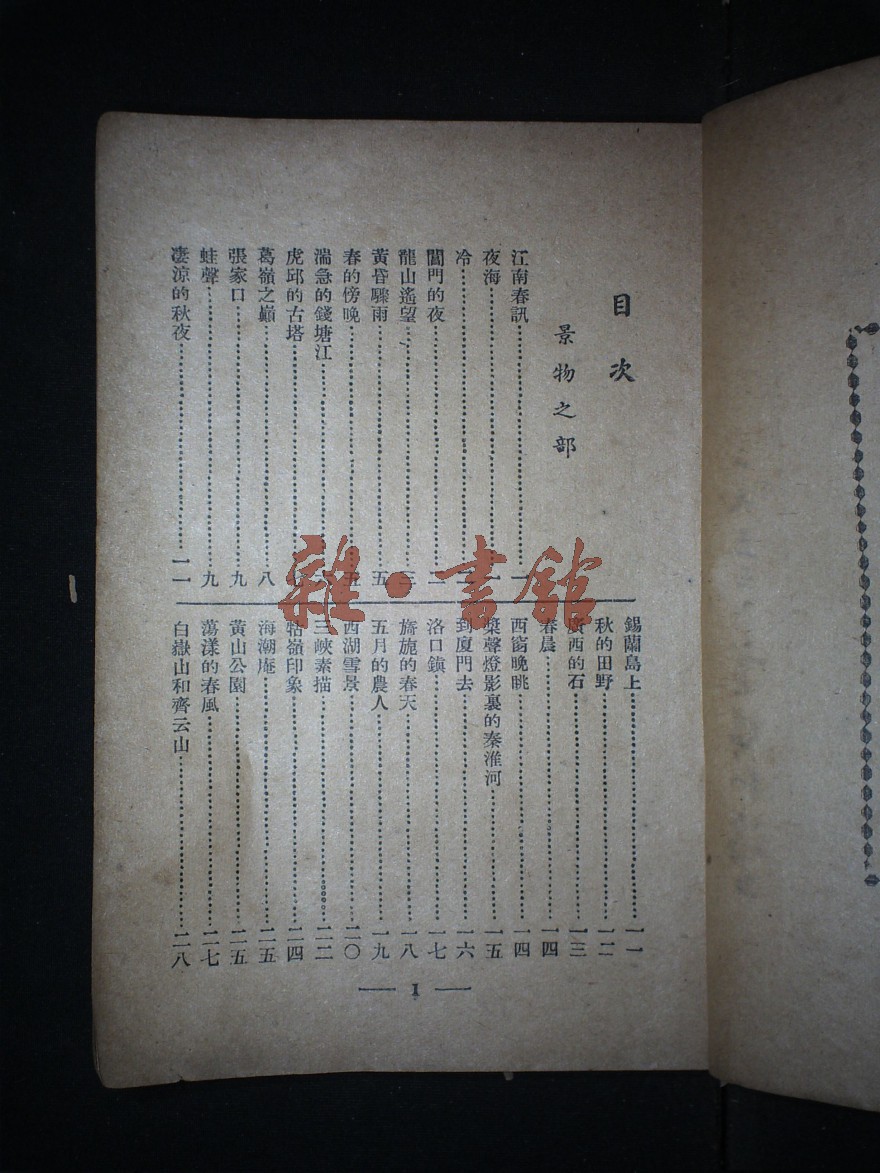 目次
景物之部
江南春訊……一
夜海……一
冷……二
閶門的夜……二
龍山遙望……三
黃昏驟雨……五
春的傍晚……五
湍急的錢塘江……
虎邱的古塔……七
葛嶺之巔……八
張家口……九
蛙聲……九
淒涼的秋夜……一一
錫蘭島上……一一
秋的田野……一二
廣西的石……一三
春晨……一四
西窗晚眺……一四
槳聲燈影裏的秦淮河……一五
到厦門去……一六
洛口鎮……一七
旖旎的春天……一八
五月的農人……一九
西湖雪景……二〇
三峽素描……二二
牯嶺印象……二四
海潮庵……二五
黃山公園……二五
蕩漾的春風……二七
白嶽山和齊云山……二八
— 1 —
雜·書館